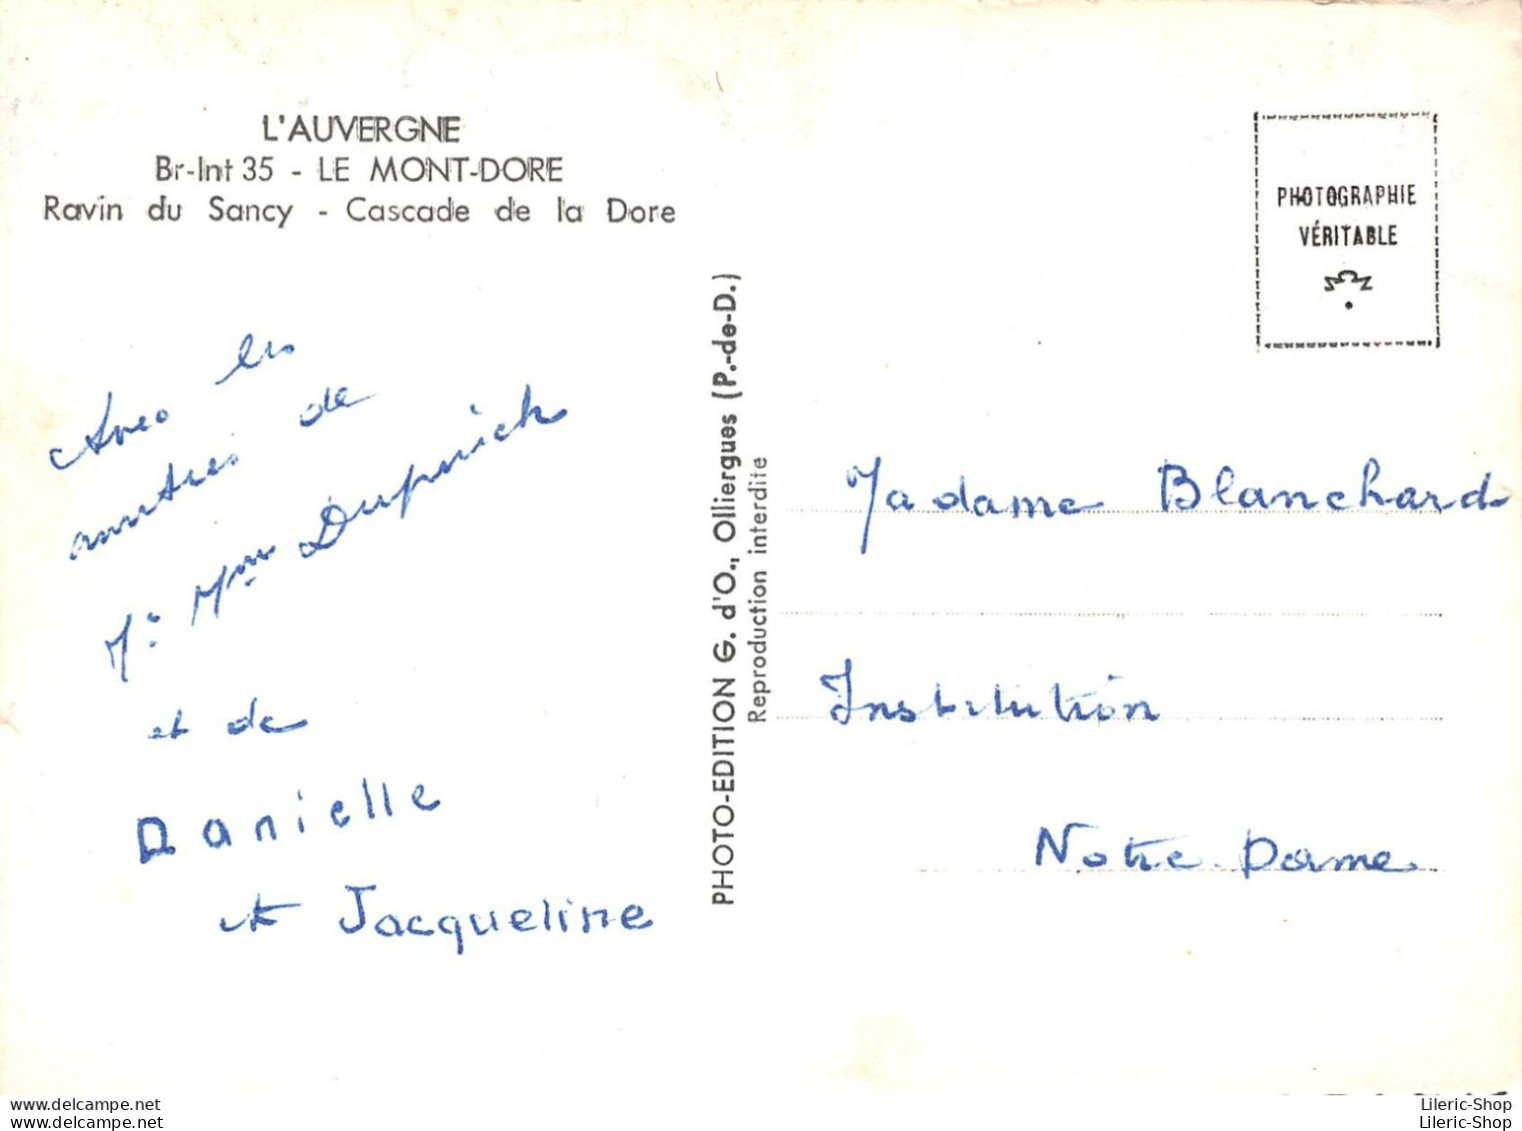 L'AUVERGNE
Br-Int 35 - LE MONT-DORE
Ravin du Sancy - Cascade de la Dore
Avec les
de
Mr Mme
et de
Danielle
et Jacqueline
PHOTO-EDITION G. d'O., Olliergues (P.-de-D.)
Reproduction interdite
PHOTOGRAPHIE
VÉRITABLE
Madame Blanchard
Institution
Notre Dame
www.delcampe.net
www.delcampe.net
Lileric-Shop
Lileric-Shop